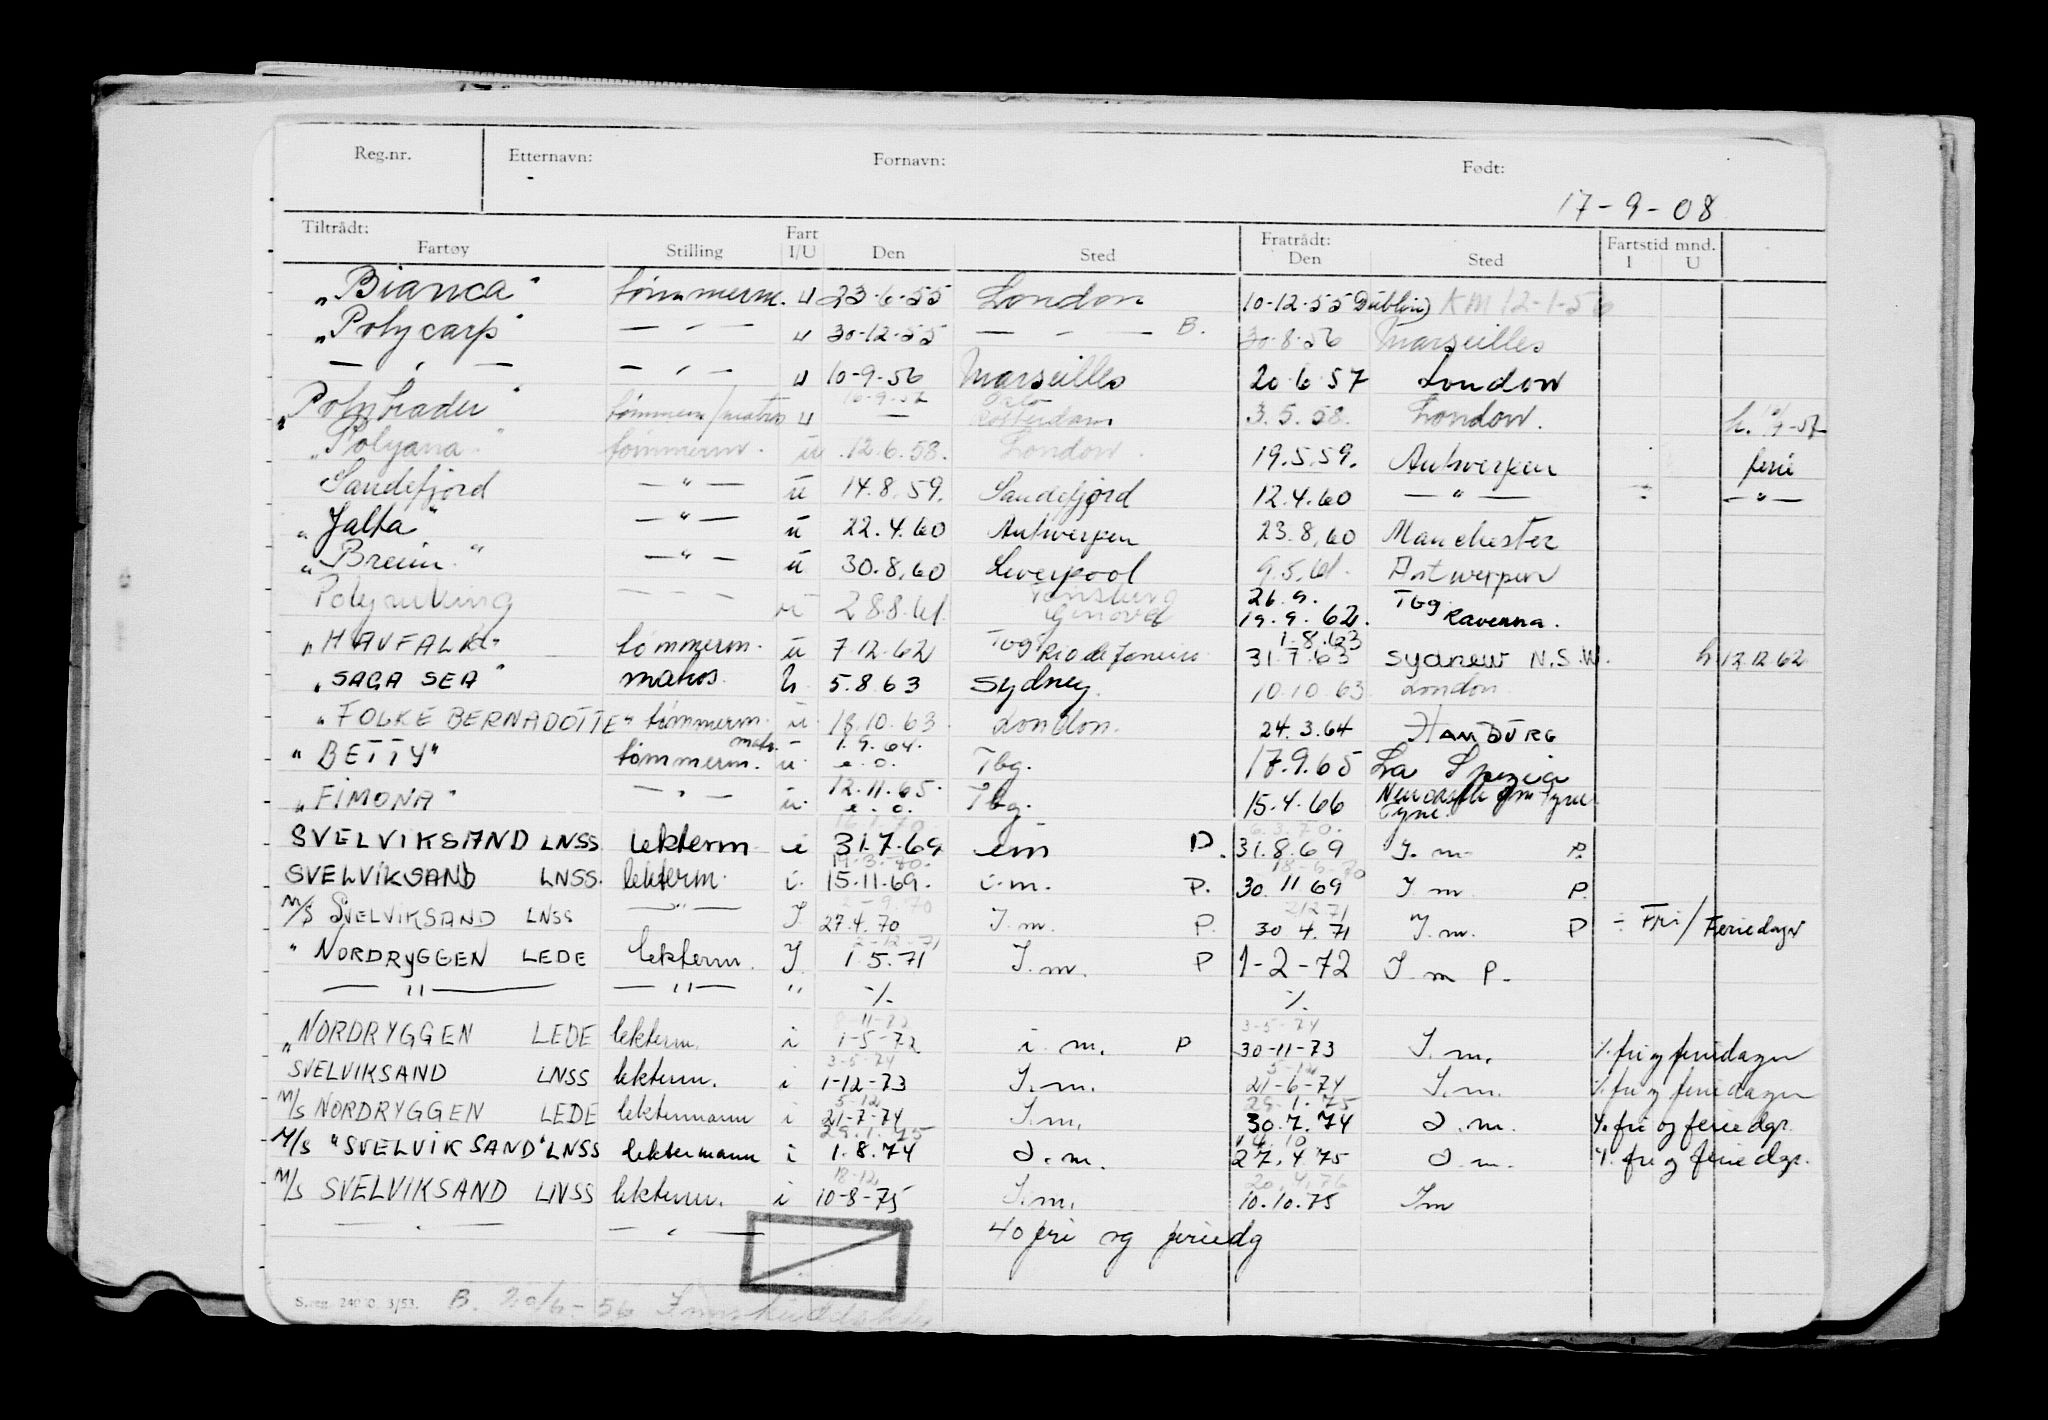 Reg.nr. Etternavn: Fornavn: Født:
17-9-08
Tiltrådt: Fartøy Stilling Fart I/U Den Sted Fratrådt: Den Sted Fartstid mnd. I U
„Bianca" tømmerm. u 23-6-55 London 10-12-55 Dublin) KM 12-1-56
„Polycarp" — " — u 30-12-55 — " — B. 30-8-56 Marseilles
— " — — " — u 10-9-56 Marseilles 20-6-57 London
10-9-57 Oslo
„Polytrader" tømmerm/matros u — Rotterdam 3.5.58. London.
„Polyana" tømmerm. u 12.6.58. London. 19.5.59. Antwerpen ferie
Sandefjord — " — u 14.8.59. Sandefjord 12.4.60 — " — — " —
„Jalta" — " — u 22.4.60 Antwerpen 23.8.60 Manchester
„Breim" — " — u 30.8.60 Liverpool 9.5.61. Antwerpen
Tønsberg 26.9. Tbg
Polyviking — " — u 28.8.61 Genova 19.9.62. Ravenna.
1.8.63
„HAVFALK" tømmerm. u 7.12.62 Tbg Rio de Janeiro 31.7.63 Sydney N.S.W. h 12.12.62
„SAGA SEA" matros h. 5.8.63 Sydney. 10.10.63 London
„FOLKE BERNADOTTE" tømmerm. u. 18.10.63. London. 24.3.64 HAMBURG
matr. u 1.9.64.
„BETTY" tømmerm. u. e.o. Tbg. 17.9.65 La Spezia
12.11.65.
„FIMONA" — " — u. e.o. Tbg. 15.4.66 Tyne
6.3.70.
SVELVIKSAND LNSS lekterm i 31.7.69 im P. 31.8.69 I.m. P.
19.3.70. 18-6-70
SVELVIKSAND LNSS. lekterm. i. 15.11.69. i.m. P. 30 11 69 I m P
2-9.70 21271
M/S SVELVIKSAND LNSS — " — I. 27.4.70 I.m. P. 30 4.71 I.m. P ÷ Fri / Feriedager
2-12-71
" NORDRYGGEN LEDE lekterm. I. 1.5.71 I.m. P 1-2-72 I m P.
— " — — " — " % %
3-5-74
„NORDRYGGEN LEDE lekterm. i 1-5-72 i.m. P 30-11-73 I.m. % fri og feriedager
3-5-74 5-12
SVELVIKSAND LNSS lekterm. i 1-12-73 I.m. 21-6-74 I.m. % fri og feriedager
5-12 29.1.75
M/S NORDRYGGEN LEDE lektermann i 21-7-74 I.m. 30.7.74 I.m. % fri og feriedgr.
29.1.75 14.10
M/S "SVELVIKSAND" LNSS lektermann i 1.8.74 I.m. 27.4.75 I.m. % fri og feriedgr.
18-12 20.4.76
M/S SVELVIKSAND LNSS lekterm. i 10-8-75 I.m. 10.10.75 Im
— " — — " — 40 fri og feriedg
S.reg. 3/53. B. 29/6-56